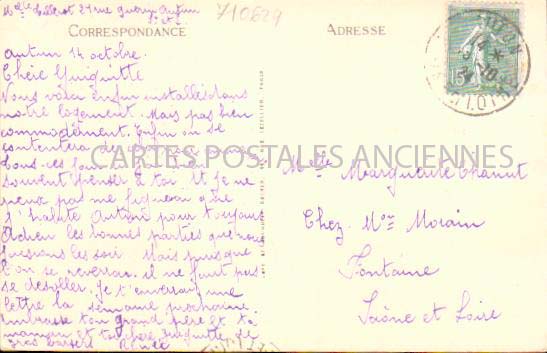 Melle 29 rue Autun
710629
CORRESPONDANCE
ADRESSE
Autun 14 octobre.
Chère Guiguitte
Nous voici enfin installés dans
notre logement. Mais pas bien
commodément. Enfin on se
contentera
Tous ces
souvent penser à toi. Et je ne
peux pas me figurer que
j'habite Autun pour toujours
Adieu les bonnes parties que nous
faisions les soir Mais puisque
l'on se reverra il ne faut pas
se désoller. Je t'enverrai une
lettre la semaine prochaine.
Embrasse ton grand père et ta
maman et Guiguitte de
gros baisers Renée
CARTES POSTALES ANCIENNES
Melle Marguerite Chanut
Chez Mme Morain
Fontaine
Saône et Loire
15
AUTUN